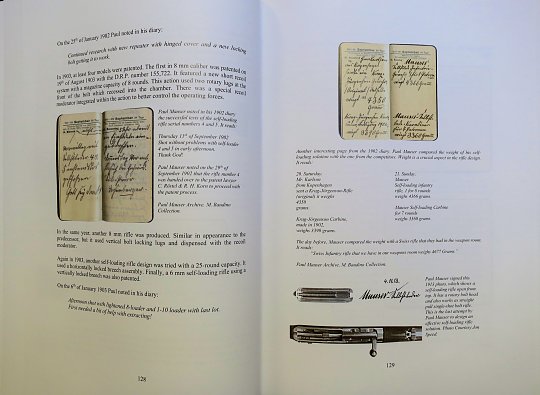 On the 25th of January 1902 Paul noted in his diary:
Continued research with new repeater with hinged cover and a new locking
bolt getting it to work.
In 1903, at least four models were patented. The first in 8 mm caliber was patented on
19th of August 1903 with the D.R.P. number 155,722. It featured a new short recoil
system with a magazine capacity of 8 rounds. This action used two rotary lugs at the
front of the bolt which recessed into the chamber. There was a special recoil
moderator integrated within the action to better control the operating forces.
Paul Mauser noted in his 1902 diary
the successful tests of the self-loading
rifle serial numbers 4 and 5. It reads:
Thursday 11th of September 1902
Shot without problems with self-loader
4 and 5 in early afternoon.
Thank God!
Paul Mauser noted on the 29th of
September 1902 that the rifle number 4
was handed over to the patent lawyer
C. Röstel & R. H. Korn to proceed with
the patent process.
Paul Mauser Archive. M. Baudino
Collection.
In the same year, another 8 mm rifle was produced. Similar in appearance to the
predecessor, but it used vertical bolt locking lugs and dispensed with the recoil
moderator.
Again in 1903, another self-loading rifle design was tried with a 25-round capacity. It
used a horizontally locked breech assembly. Finally, a 6 mm self-loading rifle using a
vertically locked breech was also patented.
On the 6th of January 1905 Paul noted in his diary:
Afternoon shot with lightened 8-loader and 1-10 loader with last lot.
First needed a bit of help with extracting!
128
Another interesting page from the 1902 diary. Paul Mauser compared the weight of his self-
loading solution with the one from the competitors. Weight is a crucial aspect in the rifle design.
It reads:
20. Saturday.
Mr. Karlson
from Kopenhagen
sent a Krag-Jörgenson-Rifle
(original) it weighs
4350
grams
Krag-Jörgensen Carbine,
made in 1902,
weighs 3390 grams.
21. Sunday.
Mauser
Self-loading infantry
rifle, 1 for 8 rounds
weighs 4366 grams
Mauser Self-loading Carbine
for 7 rounds
weighs 3360 grams
The day before, Mauser compared the weight with a Swiss rifle that they had in the weapon room.
It reads:
"Swiss Infantry rifle that we have in our weapon room weighs 4677 Grams."
Paul Mauser Archive. M. Baudino Collection.
Paul Mauser signed this
1913 photo, which shows a
self-loading rifle open from
top. It has a rotary bolt head
and also works as straight
pull single-shot bolt rifle.
This is the last attempt by
Paul Mauser to design an
effective self-loading rifle
solution. Photo Courtesy Jon
Speed.
129